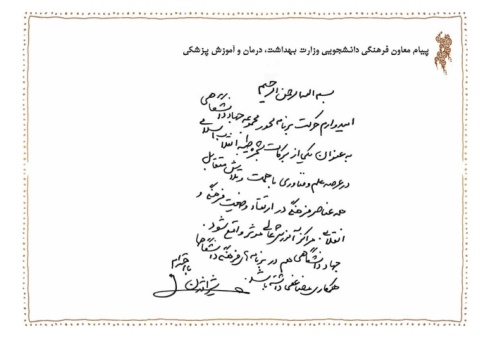 پیام معاون فرهنگی دانشجویی وزارت بهداشت، درمان و آموزش پزشکی
بسم الله الرحمن الرحیم
امیدوارم حرکت برنامه محور مجموعه جهاد دانشگاهی
به عنوان یکی از برکات شجره طیبه انقلاب اسلامی
در عرصه علم و فناوری با همت و تلاش متقابل
همه عناصر فرهنگی در ارتقاء وضعیت فرهنگی و
انقلابی مراکز آموزش عالی مؤثر واقع شود.
جهاد دانشگاهی هم در برنامه های فرهنگی دانشگاهها
همکاری مضاعفی داشته باشد.
با احترام